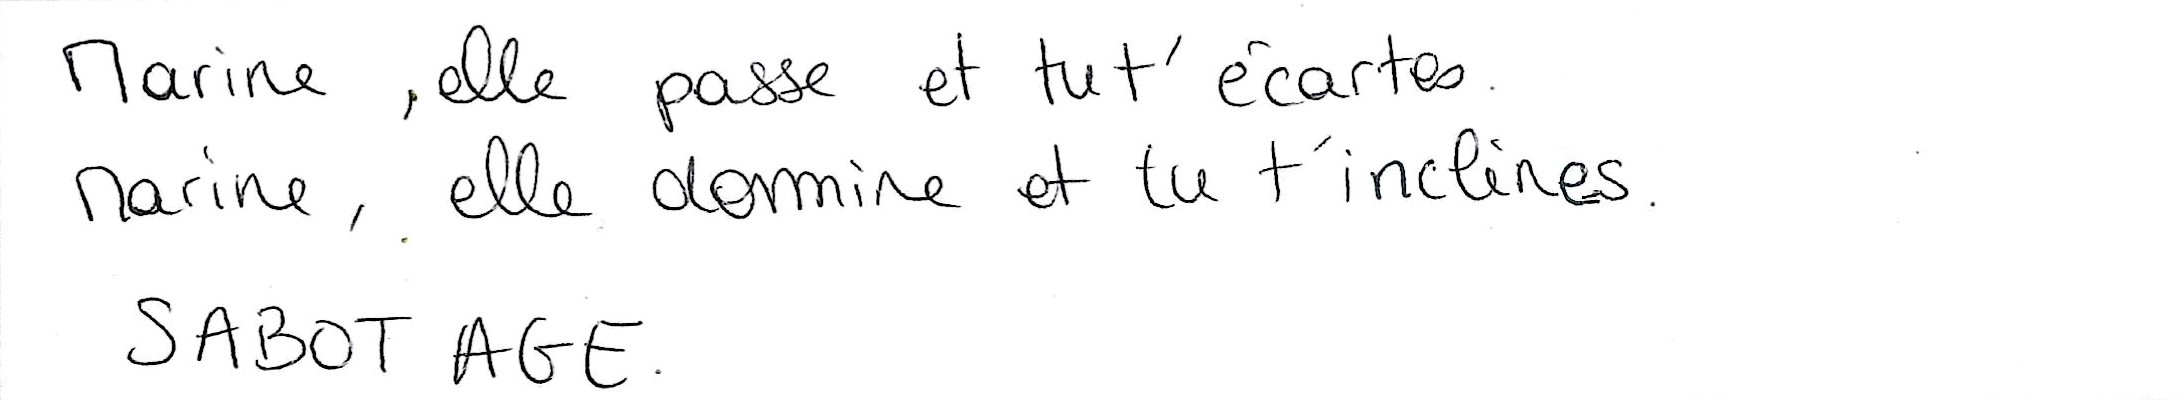 Marine, elle passe et tu t'écartes.
Marine, elle domine et tu t'inclines.
SABOTAGE.